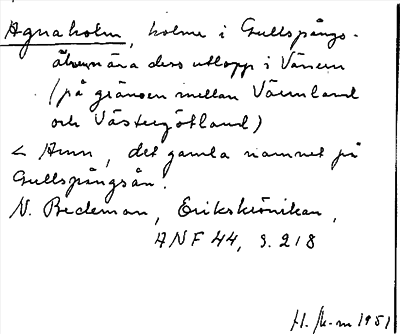 Agnaholm, holme i Gullspångs-
älven nära dess utlopp i Vänern
(på gränsen mellan Värmland
och Västergötland)
< Amn, det gamla namnet på
Gullspångsån.
N. Beckman, Erikskrönikan,
ANF 44, s. 218
H. K-m 1951